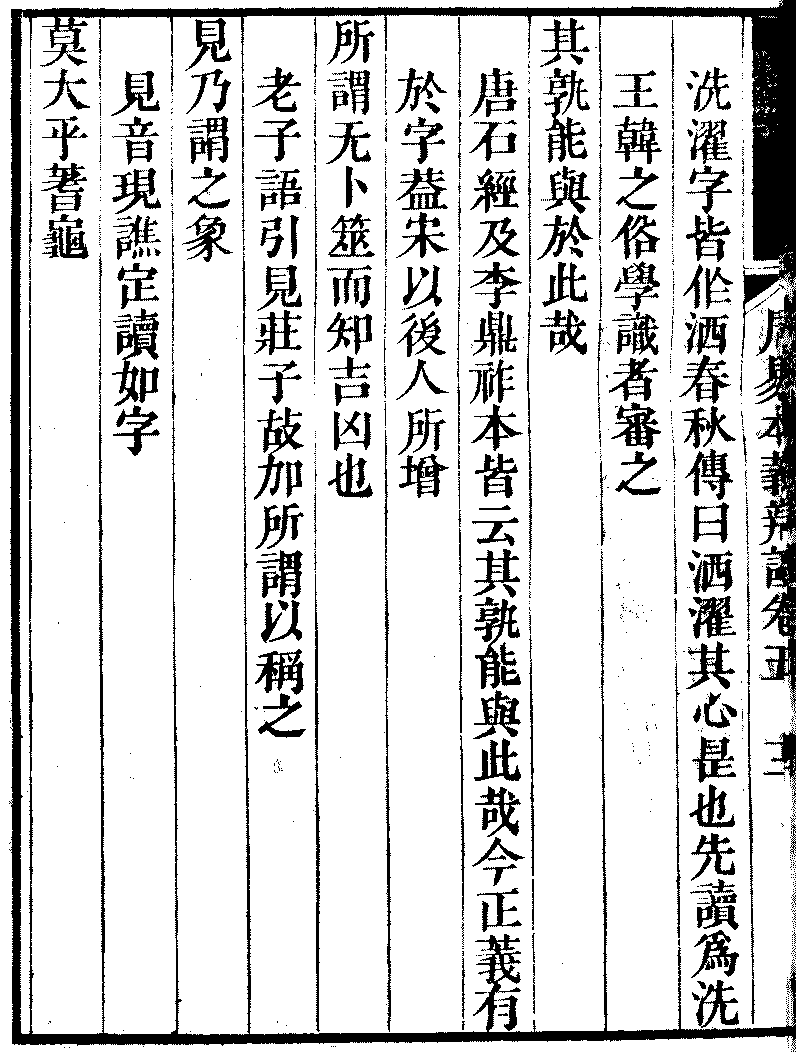 周易本義辨證卷五　二
洗濯字皆作洒春秋傳曰洒濯其心是也先讀爲洗
王韓之俗學識者審之
其孰能與於此哉
唐石經及李鼎祚本皆云其孰能與此哉今正義有
於字葢宋以後人所增
所謂无卜筮而知吉凶也
老子語引見莊子故加所謂以稱之
見乃謂之象
見音現譙定讀如字
莫大乎蓍龜